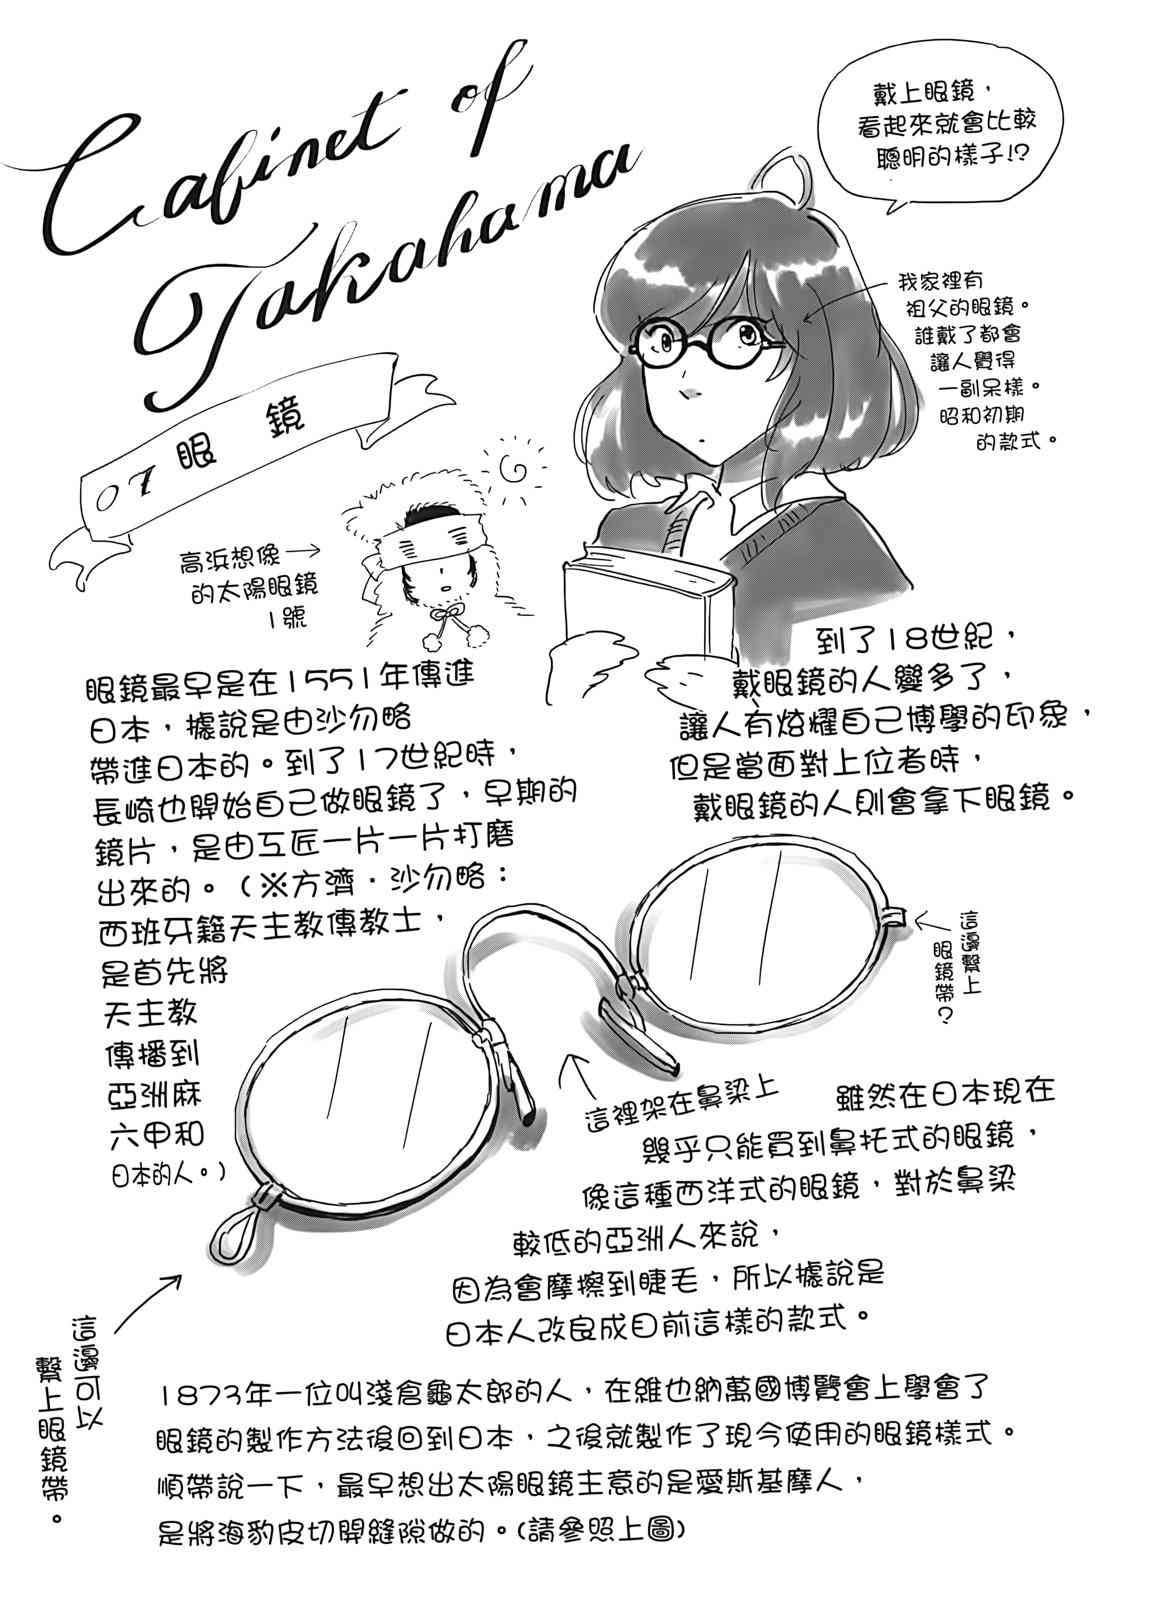 Cabinet of
Takahama
07 眼鏡
戴上眼鏡，
看起來就會比較
聰明的樣子!?
我家裡有
祖父的眼鏡。
誰戴了都會
讓人覺得
一副呆樣。
昭和初期
的款式。
高浜想像
的太陽眼鏡
1號
眼鏡最早是在1551年傳進
日本，據說是由沙勿略
帶進日本的。到了17世紀時，
長崎也開始自己做眼鏡了，早期的
鏡片，是由工匠一片一片打磨
出來的。（※方濟·沙勿略：
西班牙籍天主教傳教士，
是首先將
天主教
傳播到
亞洲麻
六甲和
日本的人。）
到了18世紀，
戴眼鏡的人變多了，
讓人有炫耀自己博學的印象，
但是當面對上位者時，
戴眼鏡的人則會拿下眼鏡。
這邊繫上
眼鏡帶?
這裡架在鼻梁上
雖然在日本現在
幾乎只能買到鼻托式的眼鏡，
像這種西洋式的眼鏡，對於鼻梁
較低的亞洲人來說，
因為會摩擦到睫毛，所以據說是
日本人改良成目前這樣的款式。
這邊可以
繫上眼鏡帶。
1873年一位叫淺倉龜太郎的人，在維也納萬國博覽會上學會了
眼鏡的製作方法後回到日本，之後就製作了現今使用的眼鏡樣式。
順帶說一下，最早想出太陽眼鏡主意的是愛斯基摩人，
是將海豹皮切開縫隙做的。(請參照上圖)